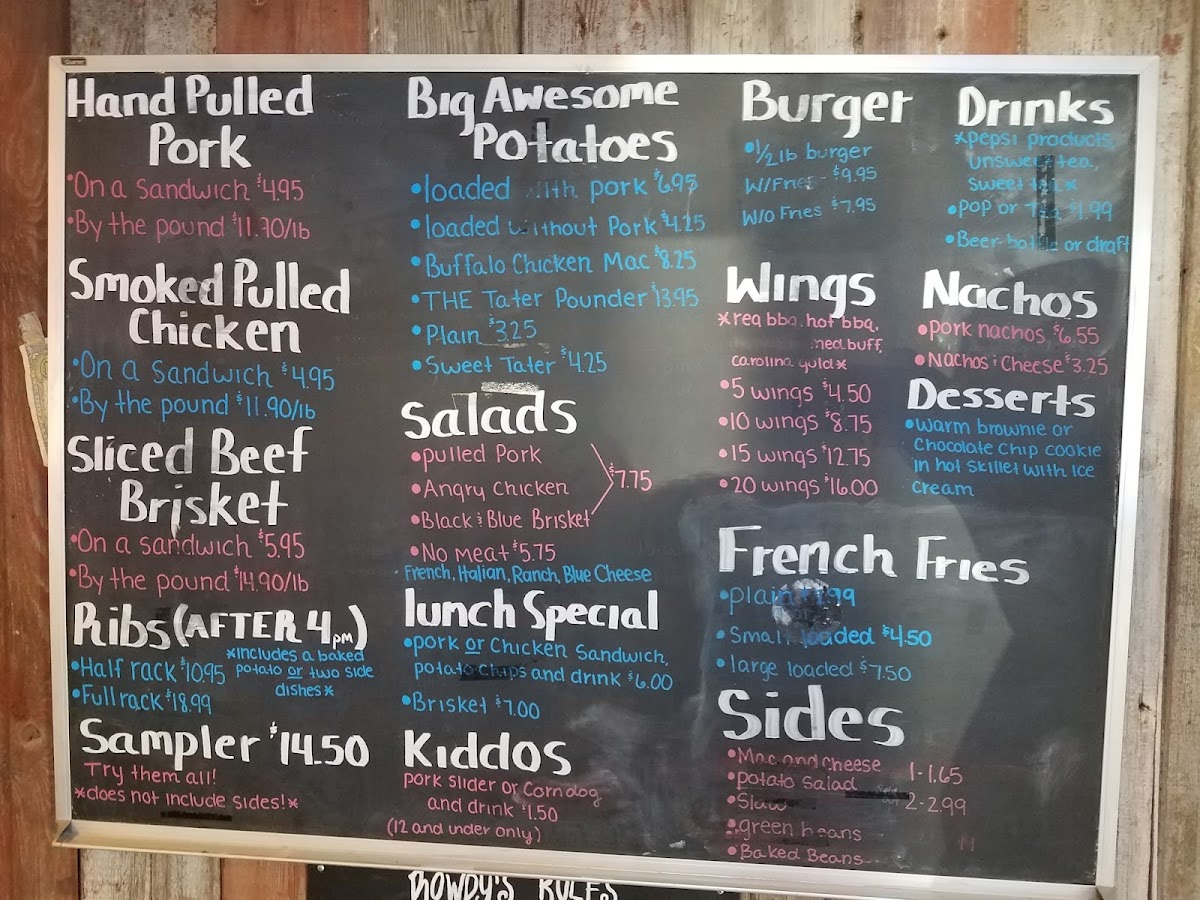 Hand Pulled
Pork
•On a sandwich $4.95
•By the pound $11.90/lb
Smoked Pulled
Chicken
•On a sandwich $4.95
•By the pound $11.90/lb
Sliced Beef
Brisket
•On a sandwich $5.95
•By the pound $14.90/lb
Ribs (AFTER 4pm)
•Half rack $10.95
•Full rack $18.99
*includes a baked
potato or two side
dishes*
Sampler $14.50
Try them all!
*does not include sides!*
Big Awesome
Potatoes
•loaded with pork $6.95
•loaded without Pork $4.25
•Buffalo Chicken Mac $8.25
•THE Tater Pounder $13.95
•Plain $3.25
•Sweet Tater $4.25
Salads
•pulled Pork
•Angry Chicken
•Black & Blue Brisket
$7.75
•No meat $5.75
French, Italian, Ranch, Blue Cheese
lunch Special
•pork or Chicken Sandwich,
potato chips and drink $6.00
•Brisket $7.00
Kiddos
pork slider or Corndog
and drink $1.50
(12 and under only)
Burger
•1/2 lb burger
W/Fries - $9.95
W/o Fries $7.95
Wings
*reg bbq, hot bbq,
med buff,
carolina gold*
•5 wings $4.50
•10 wings $8.75
•15 wings $12.75
•20 wings $16.00
Drinks
*pepsi products,
unsweet tea,
sweet tea*
•pop or tea $1.99
•Beer-bottle or draft
Nachos
•pork nachos $6.55
•Nachos & Cheese $3.25
Desserts
•warm brownie or
Chocolate Chip cookie
in hot skillet with ice
cream
French Fries
•plain
•Small loaded $4.50
•large loaded $7.50
Sides
•Mac and cheese
•potato salad
•Slaw
•green beans
•Baked Beans
1-1.65
2-2.99
ROWDY'S RULES